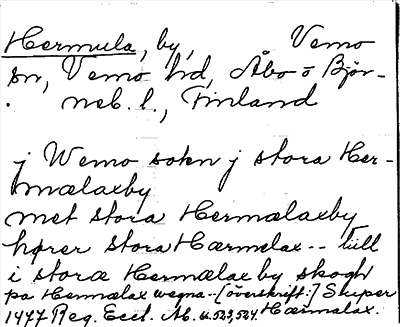 Hermula, by, Vemo
sn, Vemo hd, Åbo o Björ-
neb. l., Finland
j Wemo sokn j stora Her-
mælaxby
met stora Hermælaxby
hører stora Hærmelax -- till
i stora Hermælax by skogh
pa Hermælax wegna -- [överskrift:] Super
1477 Reg. Eccl. Ab. s. 523, 524 Hærmælax.